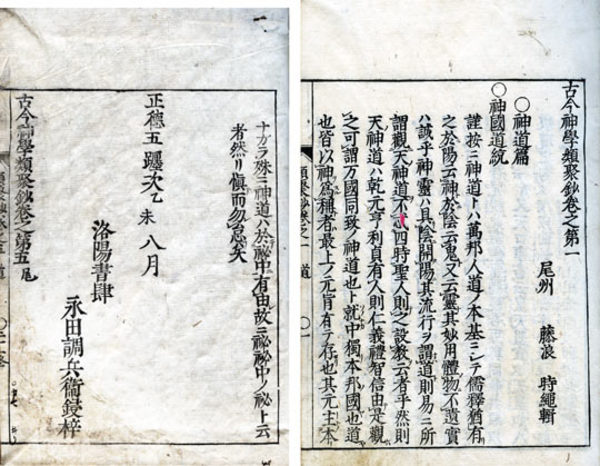 古今神學類聚鈔卷之第一
尾州 藤浪 時繩輯
○神道篇
○神國道統
謹按ニ神道トハ萬邦人道ノ本基ニシテ儒釋猶有
之於陽云神於陰云鬼又云靈其妙用體物不遺實
ハ誠乎神靈ハ具陰開陽其流行ヲ謂道則易ニ所
謂觀天神道不忒四時聖人則之設教云者乎然則
天神道ハ乾元亨利貞有人則仁義禮智信由是觀
之可謂万國同致ノ神道也ト就中獨本邦國也道
也皆以神為稱者最上ノ元旨有テ存也其元主本
ナカラ殊ニ神道ハ於祕中有由故ニ祕祕中ノ祕ト云
者然リ愼而勿怠矣
正德五躔次乙未八月
洛陽書肆
永田調兵衛鋟梓
古今神學類聚鈔卷之第五尾